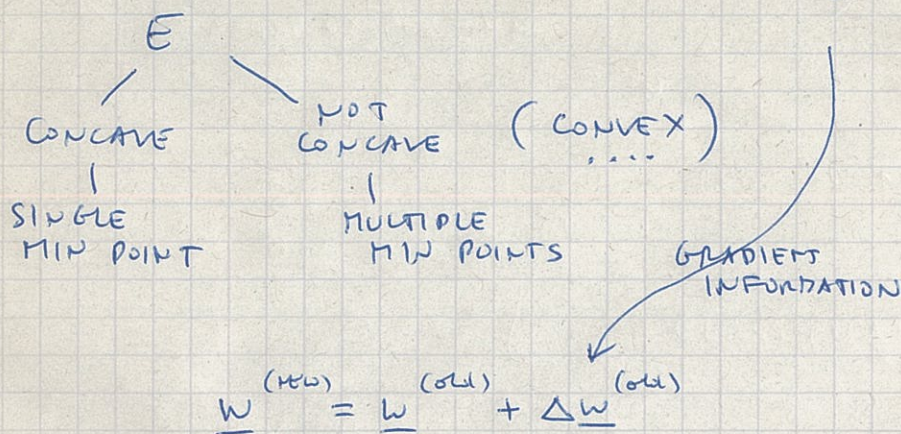 E
CONCAVE
NOT
CONCAVE
(CONVEX)
....
SINGLE
MIN POINT
MULTIPLE
MIN POINTS
GRADIENT
INFORMATION
w^(NEW) = w^(old) + Δw^(old)